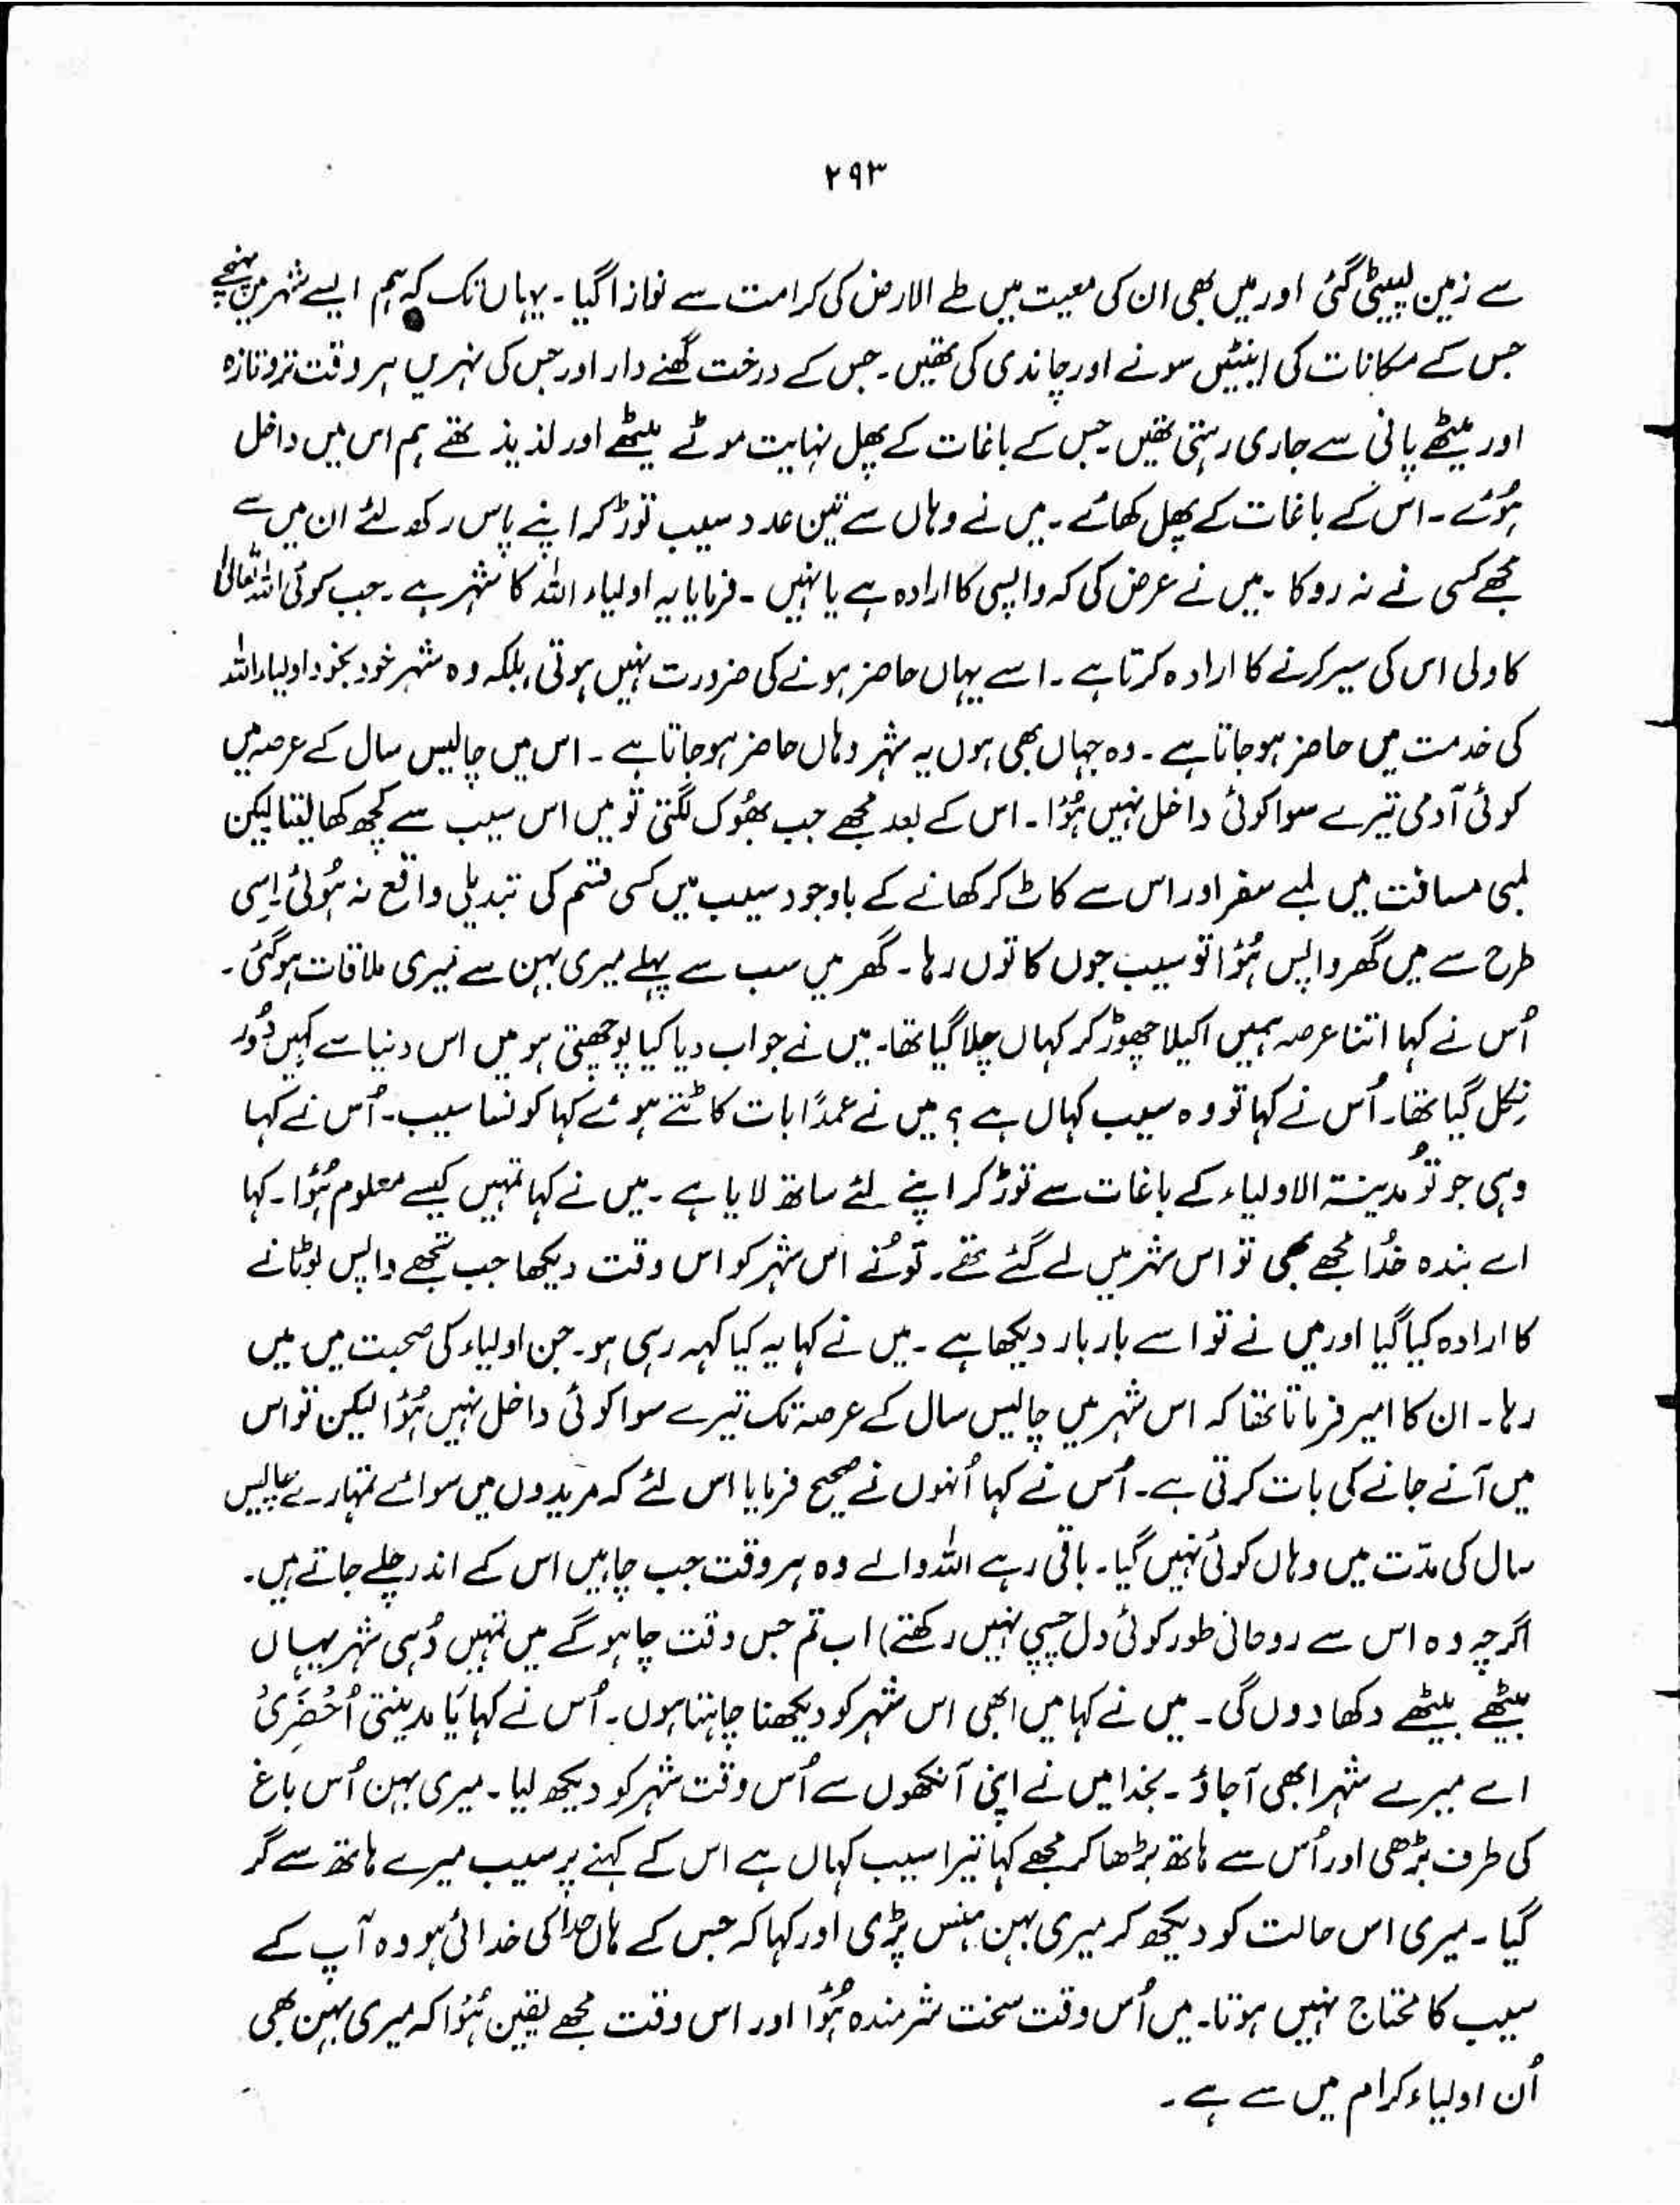 ۲۹۳
سے زمین لپیٹی گئی اور میں بھی ان کی معیت میں طے الارض کی کرامت سے نوازا گیا ۔ یہاں تک کہ ہم ایسے شہر میں پہنچے
جس کے مکانات کی اینٹیں سونے اور چاندی کی تھیں ۔ جس کے درخت گھنے دار اور جس کی نہریں ہر وقت تروتازہ
اور میٹھے پانی سے جاری رہتی تھیں جس کے باغات کے پھل نہایت موٹے میٹھے اور لذیذ تھے ہم اس میں داخل
ہُوئے ۔ اس کے باغات کے پھل کھائے ۔ میں نے وہاں سے تین عدد سیب توڑ کر اپنے پاس رکھ لئے ان میں سے
مجھے کسی نے نہ روکا ۔ میں نے عرض کی کہ واپسی کا ارادہ ہے یا نہیں ۔ فرمایا یہ اولیاء اللہ کا شہر ہے ۔ جب کوئی اللہ تعالیٰ
کا ولی اس کی سیر کرنے کا ارادہ کرتا ہے ۔ اسے یہاں حاضر ہونے کی ضرورت نہیں ہوتی بلکہ وہ شہر خود بخود اولیاء اللہ
کی خدمت میں حاضر ہو جاتا ہے ۔ وہ جہاں بھی ہوں یہ شہر وہاں حاضر ہو جاتا ہے ۔ اس میں چالیس سال کے عرصہ میں
کوئی آدمی تیرے سوا کوئی داخل نہیں ہُوا ۔ اس کے بعد مجھے جب بھُوک لگتی تو میں اس سیب سے کچھ کھا لیتا لیکن
لمبی مسافت میں لمبے سفر اور اس سے کاٹ کر کھانے کے باوجود سیب میں کسی قسم کی تبدیلی واقع نہ ہُوئی اِسی
طرح سے میں گھر واپس ہُوا تو سیب جوں کا توں رہا ۔ گھر میں سب سے پہلے میری بہن سے میری ملاقات ہو گئی ۔
اُس نے کہا اتنا عرصہ ہمیں اکیلا چھوڑ کر کہاں چلا گیا تھا ۔ میں نے جواب دیا کیا پوچھتی ہو میں اس دنیا سے کہیں دُور
نِکل گیا تھا ۔ اُس نے کہا تو وہ سیب کہاں ہے ؟ میں نے عمداً بات کاٹتے ہوئے کہا کونسا سیب ۔ اُس نے کہا
وہی جو تُو مدینۃ الاولیاء کے باغات سے توڑ کر اپنے لئے ساتھ لایا ہے ۔ میں نے کہا تمہیں کیسے معلوم ہُوا ۔ کہا
اے بندہ خُدا مجھے بھی تو اس شہر میں لے گئے تھے ۔ تُونے اس شہر کو اس وقت دیکھا جب تجھے واپس لوٹانے
کا ارادہ کیا گیا اور میں نے تو اسے بار بار دیکھا ہے ۔ میں نے کہا یہ کیا کہہ رہی ہو ۔ جن اولیاء کی صحبت میں میں
رہا ۔ ان کا امیر فرماتا تھا کہ اس شہر میں چالیس سال کے عرصہ تک تیرے سوا کوئی داخل نہیں ہُوا لیکن تو اس
میں آنے جانے کی بات کرتی ہے ۔ اُس نے کہا اُنہوں نے صحیح فرمایا اس لئے کہ مریدوں میں سوائے تمہارے چالیس
سال کی مدّت میں وہاں کوئی نہیں گیا ۔ باقی رہے اللہ والے وہ ہر وقت جب چاہیں اس کے اندر چلے جاتے ہیں ۔
اگرچہ وہ اس سے روحانی طور کوئی دل چسپی نہیں رکھتے) اب تم جس وقت چاہو گے میں تمہیں وُہی شہر یہاں
بیٹھے بیٹھے دکھا دوں گی ۔ میں نے کہا میں ابھی اس شہر کو دیکھنا چاہتا ہوں ۔ اُس نے کہا یَا مدینتی اُحضَرِیُ
اے میرے شہر ابھی آ جاؤ ۔ بخدا میں نے اپنی آنکھوں سے اُس وقت شہر کو دیکھ لیا ۔ میری بہن اُس باغ
کی طرف بڑھی اور اُس سے ہاتھ بڑھا کر مجھے کہا تیرا سیب کہاں ہے اس کے کہنے پر سیب میرے ہاتھ سے گر
گیا ۔ میری اس حالت کو دیکھ کر میری بہن ہنس پڑی اور کہا کہ جس کے ہاں خدا کی خدائی ہو وہ آپ کے
سیب کا محتاج نہیں ہوتا ۔ میں اُس وقت سخت شرمندہ ہُوا اور اس وقت مجھے یقین ہُوا کہ میری بہن بھی
اُن اولیاء کرام میں سے ہے ۔